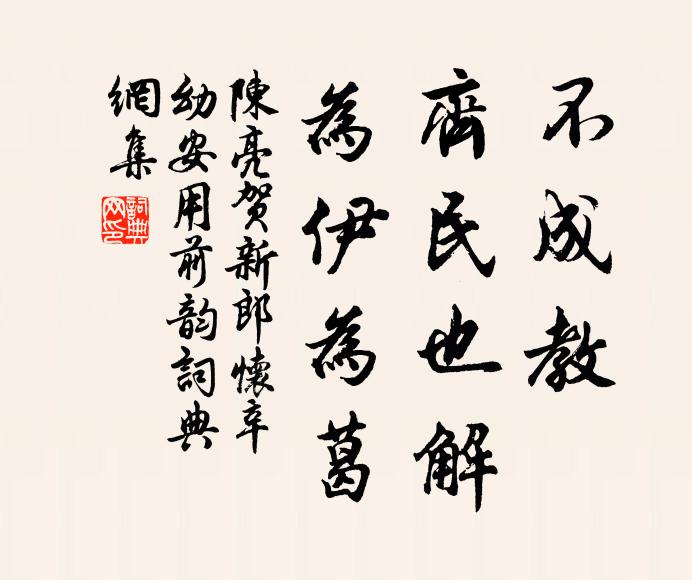 不成教
齊民也解
為伊為葛
陳亮賀新郎懷辛
幼安用前韵詞典
網集
詞典
网印